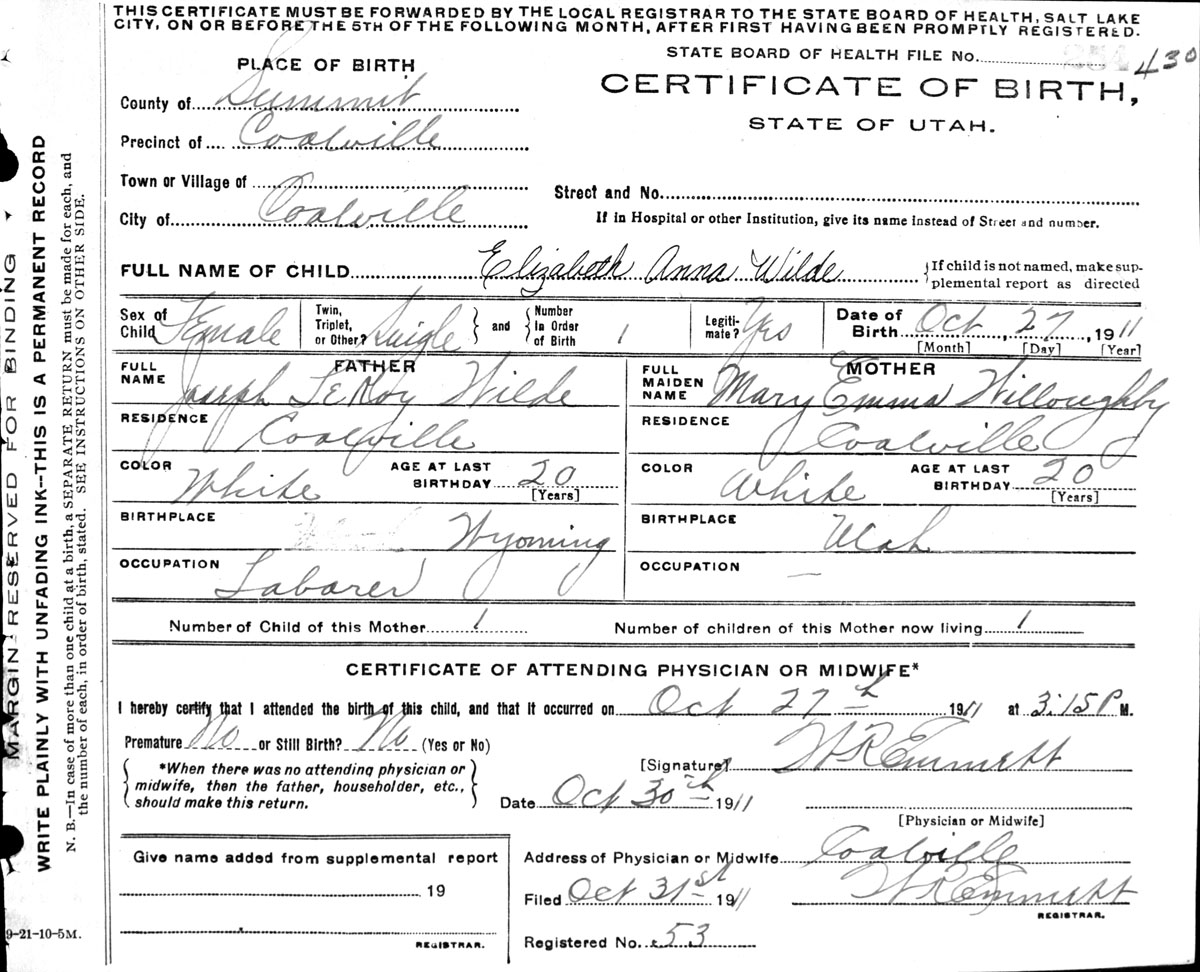 THIS CERTIFICATE MUST BE FORWARDED BY THE LOCAL REGISTRAR TO THE STATE BOARD OF HEALTH, SALT LAKE
CITY, ON OR BEFORE THE 5TH OF THE FOLLOWING MONTH, AFTER FIRST HAVING BEEN PROMPTLY REGISTERED.
STATE BOARD OF HEALTH FILE No. 430
PLACE OF BIRTH
CERTIFICATE OF BIRTH,
STATE OF UTAH.
County of Summit
Precinct of Coalville
Town or Village of
Street and No.
City of Coalville
If in Hospital or other Institution, give its name instead of Street and number.
FULL NAME OF CHILD Elizabeth Anna Wilde
{If child is not named, make sup-
plemental report as directed
Sex of Child Female
Twin, Triplet, or Other? Single } and { Number In Order of Birth 1
Legiti-mate? Yes
Date of Birth Oct 27, 1911
[Month] [Day] [Year]
FATHER
FULL NAME Joseph LeRoy Wilde
MOTHER
FULL MAIDEN NAME Mary Emma Willoughby
RESIDENCE Coalville
RESIDENCE Coalville
COLOR White AGE AT LAST BIRTHDAY 20 [Years]
COLOR White AGE AT LAST BIRTHDAY 20 [Years]
BIRTHPLACE Wyoming
BIRTHPLACE Utah
OCCUPATION Laborer
OCCUPATION —
Number of Child of this Mother 1
Number of children of this Mother now living 1
CERTIFICATE OF ATTENDING PHYSICIAN OR MIDWIFE*
I hereby certify that I attended the birth of this child, and that it occurred on Oct 27th 1911 at 3:15 P M.
Premature No or Still Birth? No (Yes or No)
{ *When there was no attending physician or
midwife, then the father, householder, etc.,
should make this return. }
[Signature] W R Emmett
Date Oct 30th 1911
[Physician or Midwife]
Give name added from supplemental report
19
REGISTRAR.
Address of Physician or Midwife Coalville
Filed Oct 31st 1911 W R Emmett
REGISTRAR.
Registered No. 53
MARGIN RESERVED FOR BINDING
WRITE PLAINLY WITH UNFADING INK--THIS IS A PERMANENT RECORD
N. B.—In case of more than one child at a birth, a SEPARATE RETURN must be made for each, and
the number of each, in order of birth, stated. SEE INSTRUCTIONS ON OTHER SIDE.
9-21-10-5M.